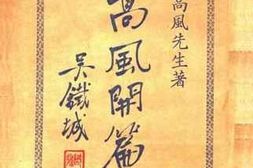 高風先生著
高風開篇
吳鐵城